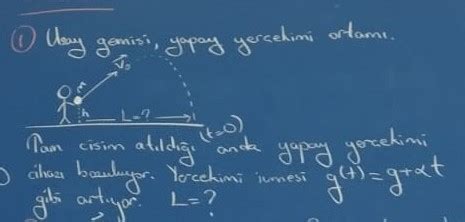 ① Uzay gemisi, yapay yerçekimi ortamı.
m V₀
h L=?
Tam cisim atıldığı (t=0) anda yapay yerçekimi
cihazı bozuluyor. Yerçekimi ivmesi g(t) = g+αt
gibi artıyor. L=?